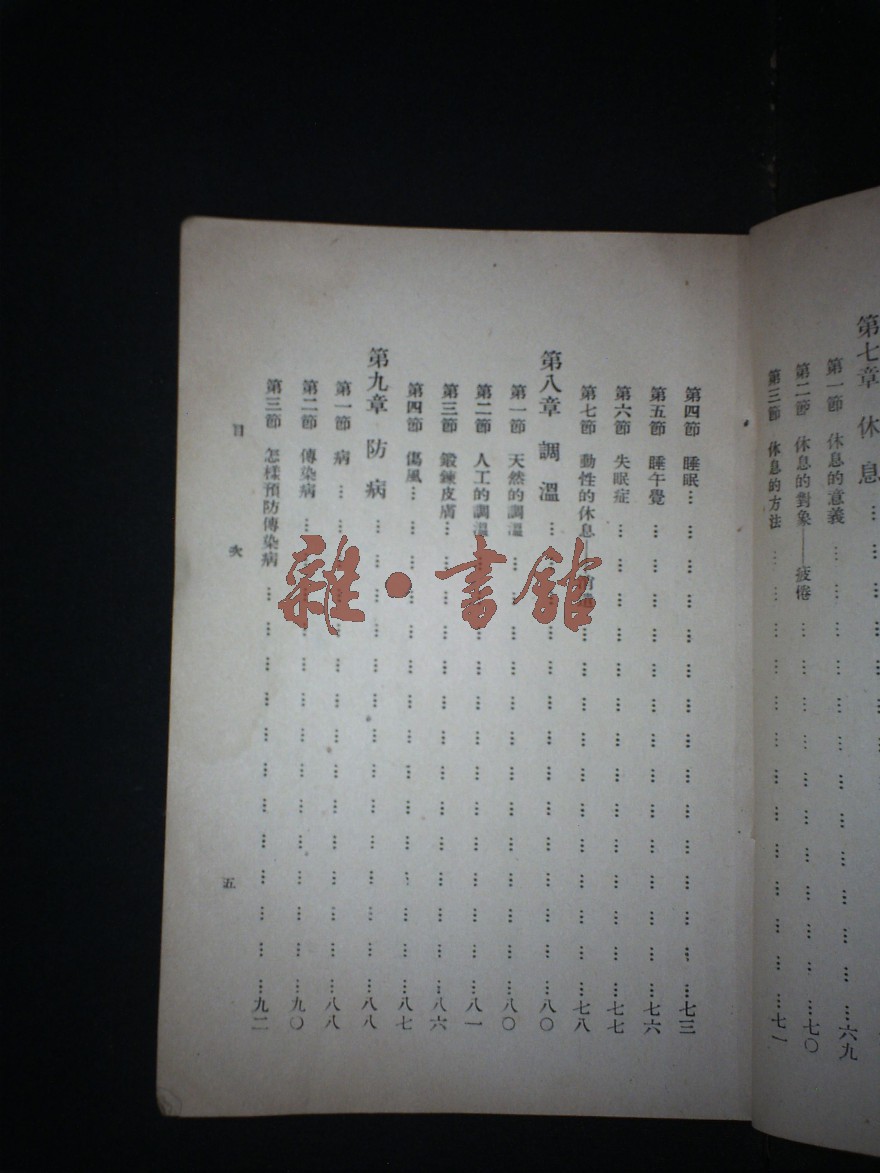 第七章 休息…………
第一節 休息的意義…………六九
第二節 休息的對象——疲倦…………七〇
第三節 休息的方法…………七一
第四節 睡眠…………七三
第五節 睡午覺…………七六
第六節 失眠症…………七七
第七節 動性的休息…………七八
第八章 調溫…………八〇
第一節 天然的調溫…………八〇
第二節 人工的調溫…………八一
第三節 鍛鍊皮膚…………八六
第四節 傷風…………八七
第九章 防病…………八八
第一節 病…………八八
第二節 傳染病…………九〇
第三節 怎樣預防傳染病…………九二
目次 五
雜·書館